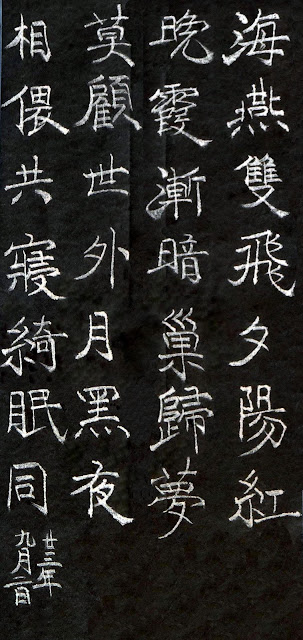 海燕雙飛夕陽紅
晚霞漸暗巢歸夢
莫顧世外月黑夜
相偎共寢綺眠同
廿三年
九月二日